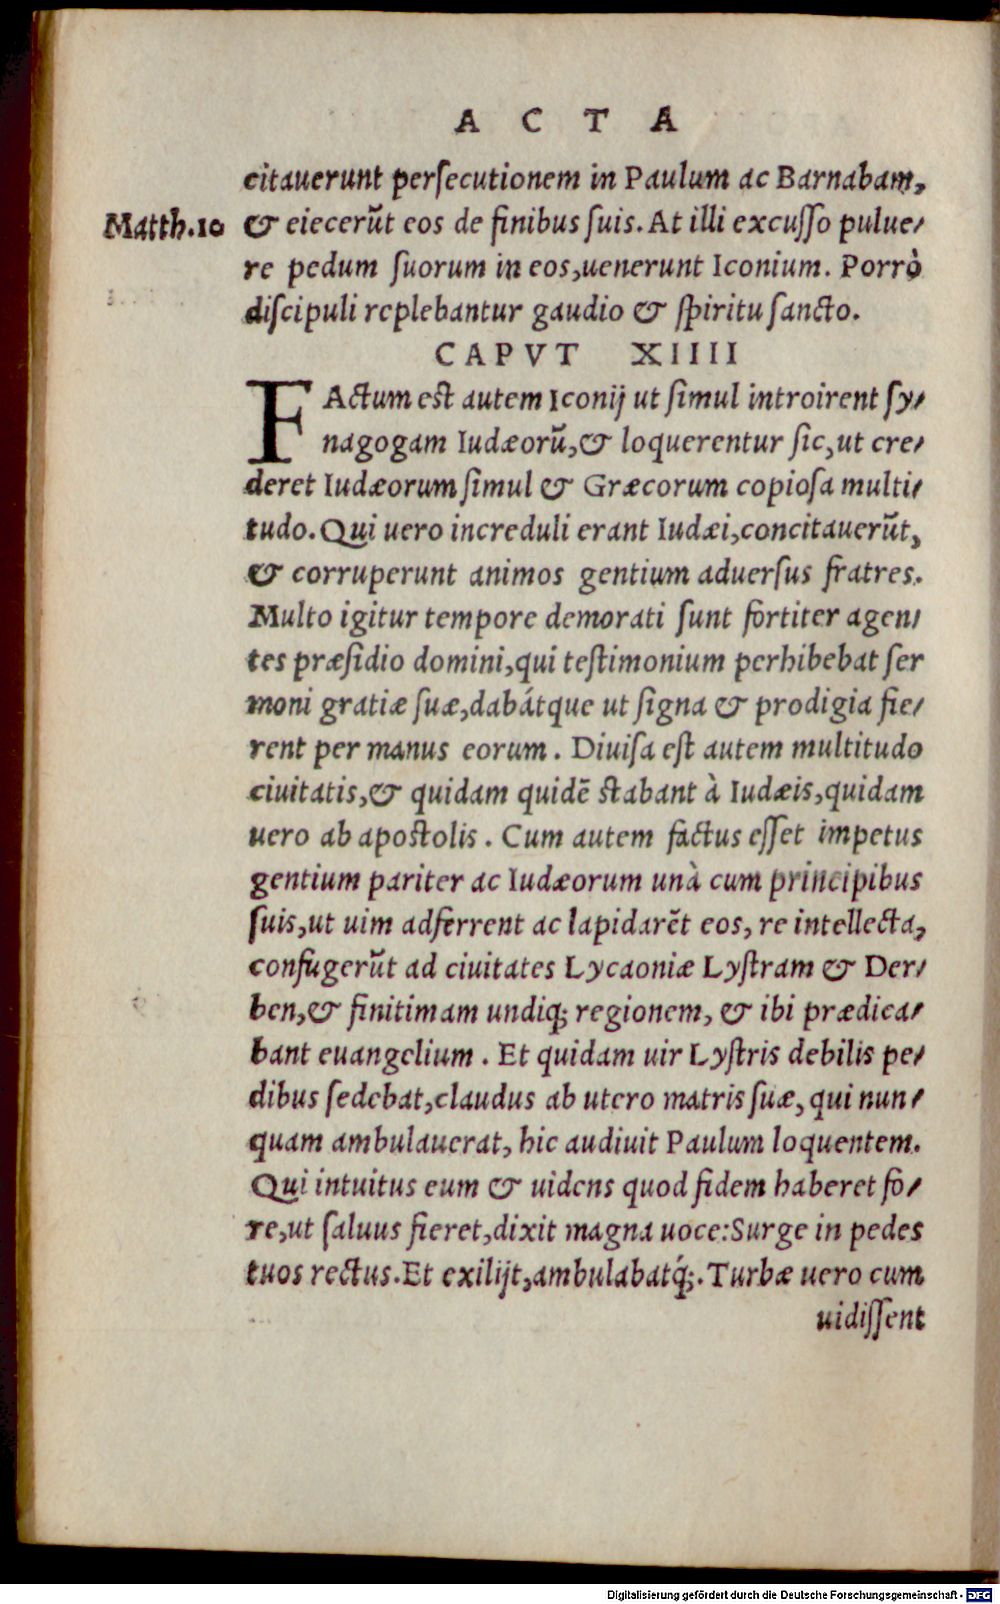 ACTA
citauerunt perſecutionem in Paulum ac Barnabam,
Matth.10 & eiecerũt eos de finibus ſuis. At illi excuſſo pulue/
re pedum ſuorum in eos,uenerunt Iconium. Porrò
diſcipuli replebantur gaudio & ſpiritu ſancto.
CAPVT XIIII
FActum est autem Iconij ut ſimul introirent ſy/
nagogam Iudæorũ,& loquerentur ſic,ut cre/
deret Iudæorum ſimul & Græcorum copioſa multi/
tudo. Qui uero increduli erant Iudæi,concitauerũt,
& corruperunt animos gentium aduerſus fratres.
Multo igitur tempore demorati ſunt fortiter agen/
tes præſidio domini,qui teſtimonium perhibebat ſer
moni gratiæ ſuæ,dabátque ut ſigna & prodigia fie/
rent per manus eorum. Diuiſa eſt autem multitudo
ciuitatis,& quidam quidẽ stabant à Iudæis,quidam
uero ab apostolis. Cum autem factus eſſet impetus
gentium pariter ac Iudæorum unà cum principibus
ſuis,ut uim adferrent ac lapidarẽt eos, re intellecta,
confugerũt ad ciuitates Lycaoniæ Lyſtram & Der/
ben,& finitimam undiq; regionem, & ibi prædica/
bant euangelium. Et quidam uir Lyſtris debilis pe/
dibus ſedebat,claudus ab utero matris ſuæ, qui nun/
quam ambulauerat, hic audiuit Paulum loquentem.
Qui intuitus eum & uidens quod fidem haberet fo/
re,ut ſaluus fieret,dixit magna uoce:Surge in pedes
tuos rectus. Et exilijt,ambulabatq́;. Turbæ uero cum
uidiſſent
Digitalisierung gefördert durch die Deutsche Forschungsgemeinschaft - DFG